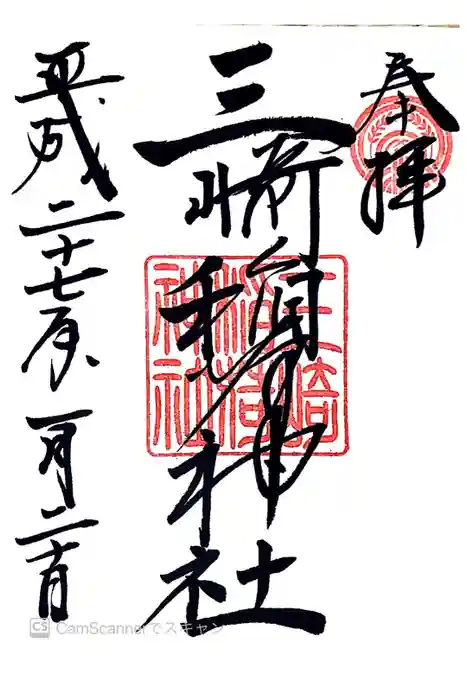 奉拝
三崎稲荷神社
三崎
稲荷
神社
平成二十七年一月二十日
CamScannerでスキャン